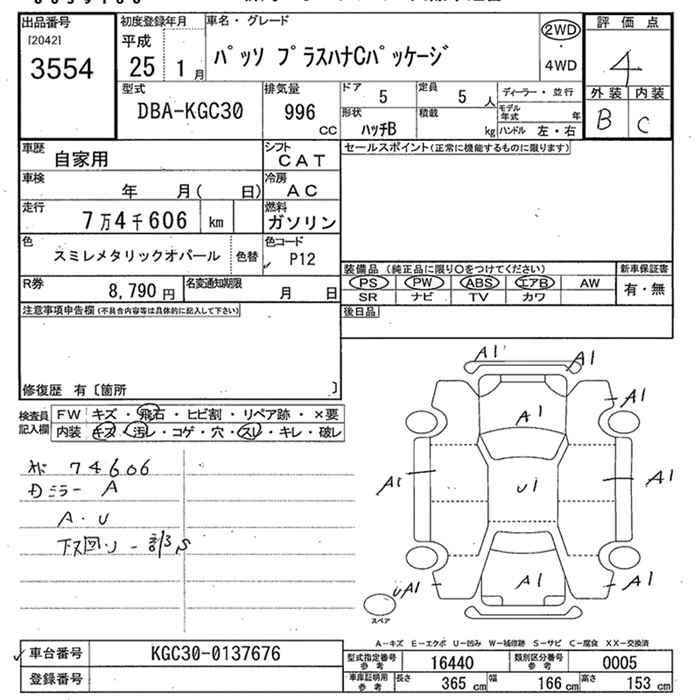 出品番号
[2042]
3554
初度登録年月
平成
25 1 月
車名・グレード
パッソ プラスハナCパッケージ
2WD
・
4WD
評価点
4
外装 内装
B C
型式
DBA-KGC30
排気量
996
cc
ドア
5
定員
5 人
形状
ハッチB
積載
kg
ディーラー・並行
モデル年式
年
ハンドル 左・右
車歴
自家用
シフト
CAT
車検
年 月( 日)
冷房
AC
走行
7万4千606 km
燃料
ガソリン
色
スミレメタリックオパール
色替
色コード
P12
R券
8,790 円
名変通知期限
月 日
セールスポイント(正常に機能するものに限ります)
装備品 (純正品に限り○をつけてください)
PS PW ABS エアB AW
SR ナビ TV カワ
新車保証書
有・無
後日品
注意事項申告欄(不具合内容等は具体的に記入して下さい)
修復歴 有〔箇所 〕
検査員
記入欄
FW キズ・飛石・ヒビ割・リペア跡・×要
内装 キズ・汚レ・コゲ・穴・スレ・キレ・破レ
74606
ミラー A
A・U
下回リ
S
A1 A1
A1
A1
A1
U1
A1
A1
A1
UA1
A1
スペア
A-キズ E-エクボ U-凹み W-補修跡 S-サビ C-腐食 XX-交換済
車台番号
KGC30-0137676
登録番号
型式指定番号
参考
16440
類別区分番号
参考
0005
車庫証明用
参考
長さ
365 cm
幅
166 cm
高さ
153 cm